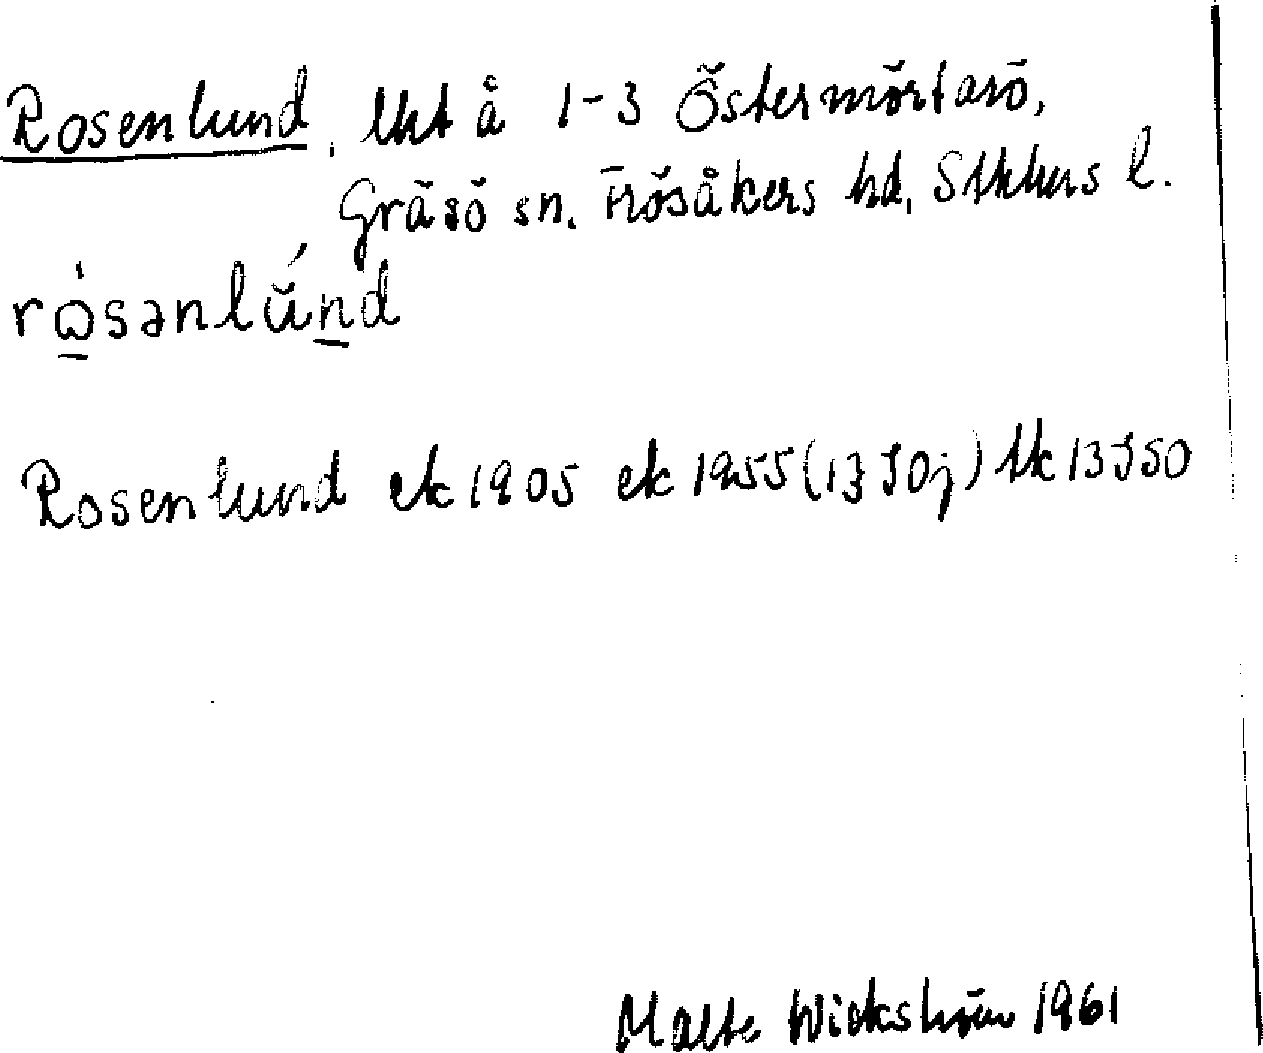 Rosenlund, lht å 1-3 Östermörtarö,
Gräsö sn. Frösåkers hd, Sthlms l.
Rosenlund ek 1905 ek 1955 (13 J0j) tk 13J S0
Malte Wickström 1961